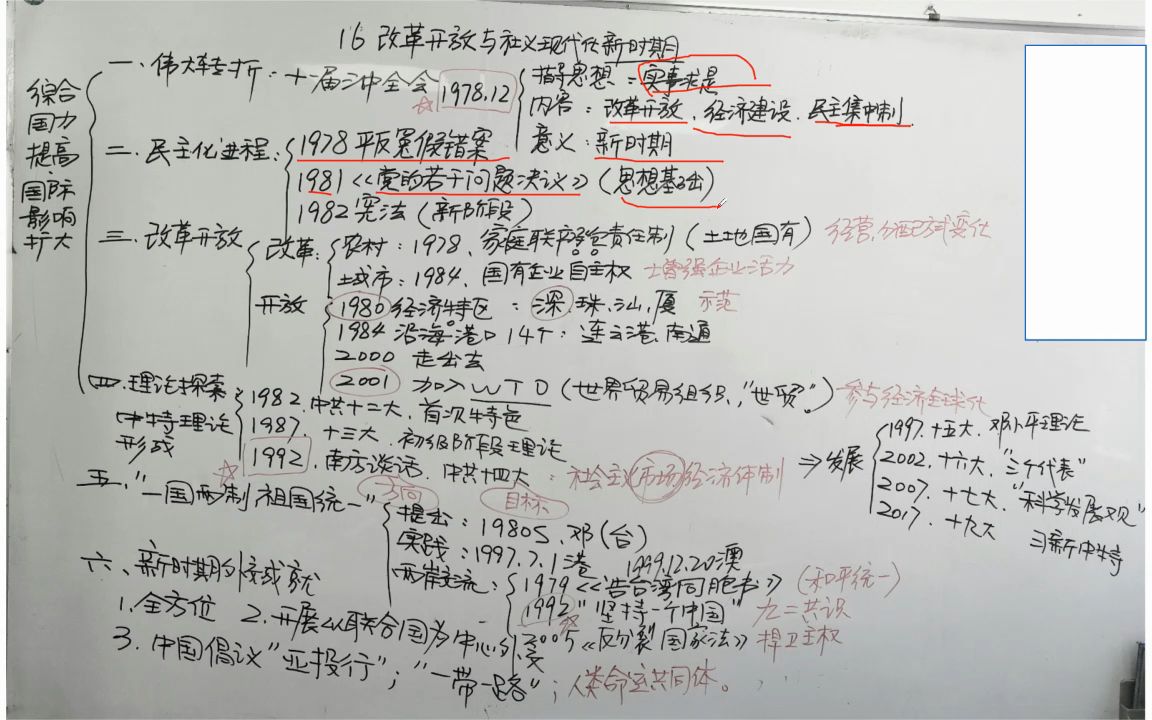 16 改革开放与社义现代化新时期
综合国力提高国际影响扩大
一、伟大转折：十一届三中全会 1978.12
指导思想：实事求是
内容：改革开放、经济建设、民主集中制
意义：新时期
二、民主化进程：
1978 平反冤假错案
1981《党的若干问题决议》（思想基础）
1982 宪法（新阶段）
三、改革开放
改革：农村：1978、家庭联产承包责任制（土地国有）经营、分配方式变化
城市：1984、国有企业自主权 增强企业活力
开放
1980 经济特区：深、珠、汕、厦 示范
1984 沿海港口14个：连云港、南通
2000 走出去
2001 加入WTO（世界贸易组织、"世贸"）参与经济全球化
四、理论探索
中特理论形成
1982、中共十二大、首次特色
1987、十三大、初级阶段理论
1992、南方谈话、中共十四大：社会主义市场经济体制
⇒发展
1997、十五大、邓小平理论
2002、十六大、"三个代表"
2007、十七大、"科学发展观"
2017、十九大 习新中特
五、"一国两制、祖国统一"
方向 目标
提出：1980S、邓（台）
实践：1997.7.1港 1999.12.20澳
两岸交流：
1979《告台湾同胞书》（和平统一）
1992"坚持一个中国" 九二共识
2005《反分裂国家法》捍卫主权
六、新时期的外交成就
1.全方位 2.开展以联合国为中心
3.中国倡议"亚投行"；"一带一路"；人类命运共同体。